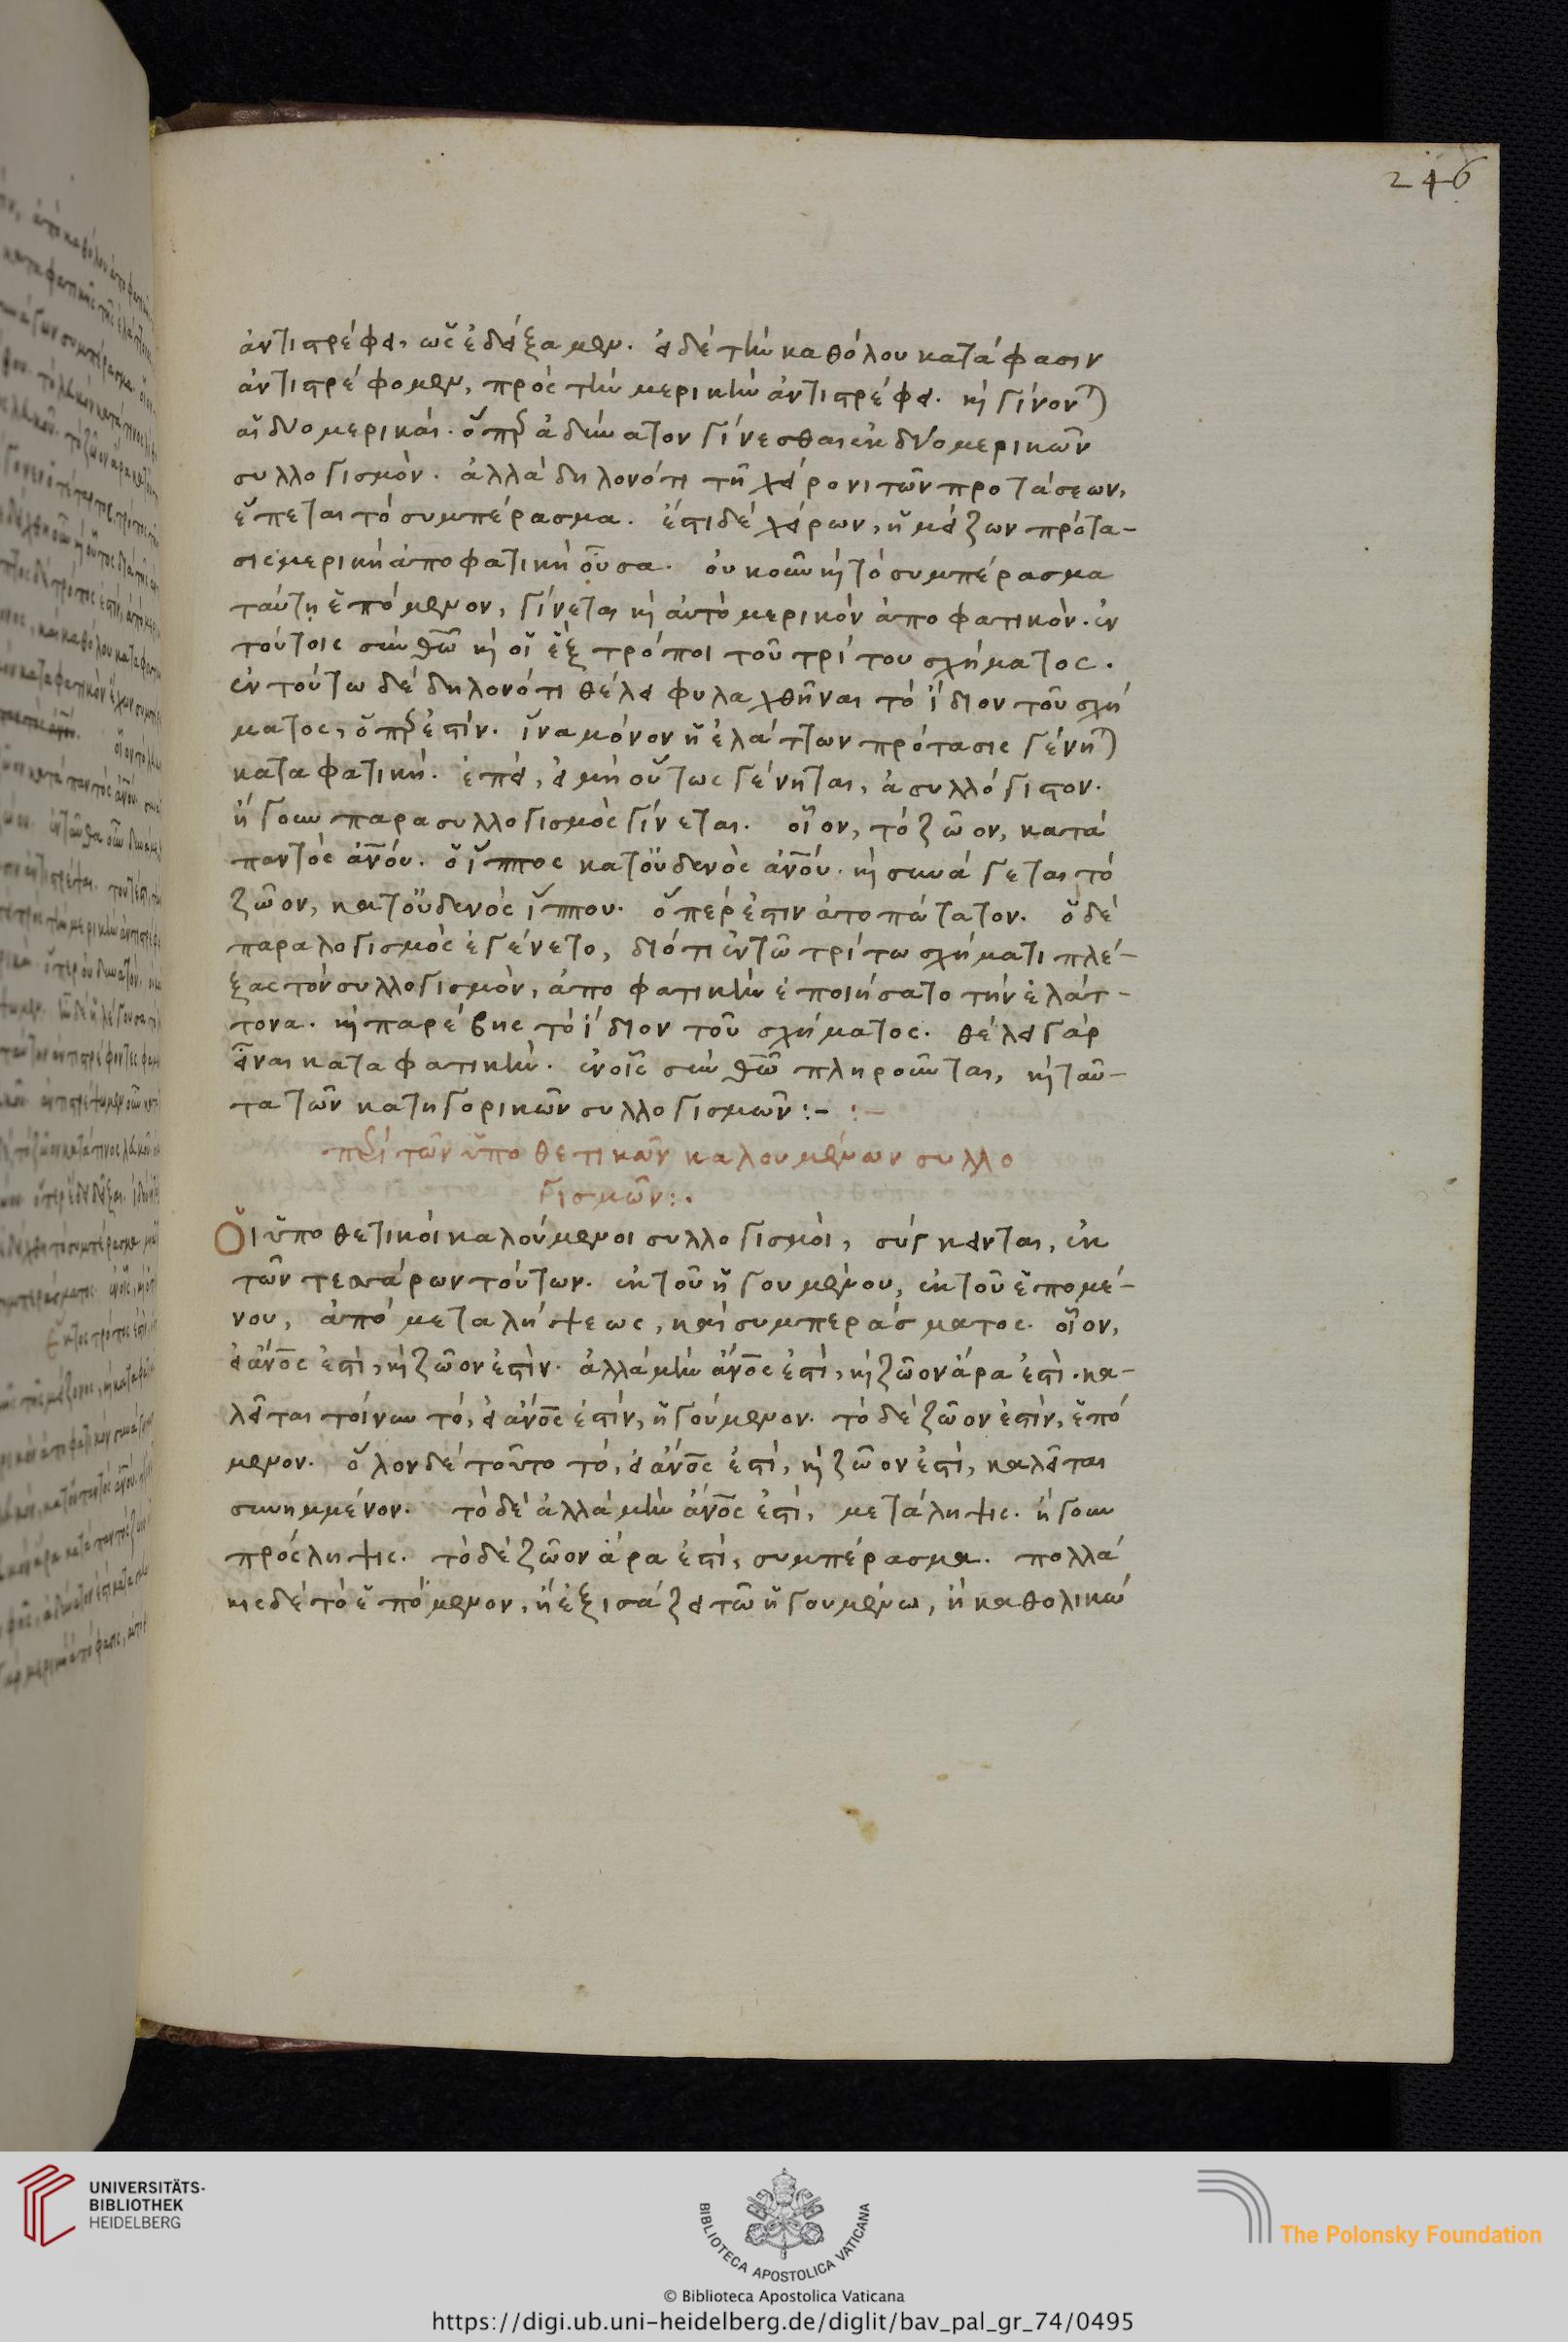 246
ἀντιστρέφει, ὡς ἐδείξαμεν. εἰ δὲ τὴν καθόλου κατάφασιν
ἀντιστρέφομεν, πρὸς τὴν μερικὴν ἀντιστρέφει. καὶ γίνονται
αἱ δύο μερικαί. ὅπερ ἀδύνατον γίνεσθαι ἐκ δύο μερικῶν
συλλογισμόν. ἀλλὰ δηλονότι τῇ χείρονι τῶν προτάσεων,
ἕπεται τὸ συμπέρασμα. ἔστι δὲ χείρων, ἡ μείζων πρότα-
σις μερικὴ ἀποφατικὴ οὖσα. οὐκοῦν καὶ τὸ συμπέρασμα
ταύτῃ ἑπόμενον, γίνεται καὶ αὐτὸ μερικὸν ἀποφατικόν. ἐν
τούτοις σὺν θεῶ καὶ οἱ ἓξ τρόποι τοῦ τρίτου σχήματος.
ἐν τούτω δὲ δηλονότι θέλει φυλαχθῆναι τὸ ἴδιον τοῦ σχή
ματος, ὅπερ ἐστίν. ἵνα μόνον ἡ ἐλάττων πρότασις γένηται
καταφατική. ἐπεί, εἰ μὴ οὕτως γένηται, ἀσυλλόγιστον.
ἤγουν παρασυλλογισμὸς γίνεται. οἷον, τὸ ζῶον, κατὰ
παντὸς ἀνου. ὁ ἵππος κατ' οὐδενὸς ἀνου. καὶ συνάγεται τὸ
ζῶον, κατ' οὐδενὸς ἵππου. ὅπερ ἐστιν ἀτοπώτατον. ὁ δὲ
παραλογισμὸς ἐγένετο, διότι ἐν τῶ τρίτω σχήματι πλέ-
ξας τὸν συλλογισμόν, ἀποφατικὴν ἐποιήσατο τὴν ἐλάτ-
τονα. καὶ παρέβης τὸ ἴδιον τοῦ σχήματος. θέλει γὰρ
εἶναι καταφατικήν. ἐν οἷς σὺν θεῶ πληροῦνται, καὶ ταῦ-
τα τῶν κατηγορικῶν συλλογισμῶν :- :-
περὶ τῶν ὑποθετικῶν καλουμένων συλλο
γισμῶν :.
Οἱ ὑποθετικοὶ καλούμενοι συλλογισμοί, σύγκεινται, ἐκ
τῶν τεσσάρων τούτων. ἐκ τοῦ ἡγουμένου, ἐκ τοῦ ἑπομέ-
νου, ἀπὸ μεταλήψεως, καὶ συμπεράσματος. οἷον,
εἰ ἄνος ἐστί, καὶ ζῶον ἐστίν. ἀλλὰ μὴν ἄνος ἐστί, καὶ ζῶον ἄρα ἐστί. κα-
λεῖται τοίνυν τό, εἰ ἄνος ἐστίν, ἡγούμενον. τὸ δὲ ζῶον ἐστίν, ἑπό
μενον. ὅλον δὲ τοῦτο τό, εἰ ἄνος ἐστί, καὶ ζῶον ἐστί, καλεῖται
συνημμένον. τὸ δὲ ἀλλὰ μὴν ἄνος ἐστί, μετάληψις. ἤγουν
πρόσληψις. τὸ δὲ ζῶον ἄρα ἐστί, συμπέρασμα. πολλά
κις δὲ τὸ ἑπόμενον, ἢ ἐξισάζει τῶ ἡγουμένω, ἢ καθολικώ
UNIVERSITÄTS-
BIBLIOTHEK
HEIDELBERG
BIBLIOTECA APOSTOLICA VATICANA
The Polonsky Foundation
© Biblioteca Apostolica Vaticana
https://digi.ub.uni-heidelberg.de/diglit/bav_pal_gr_74/0495